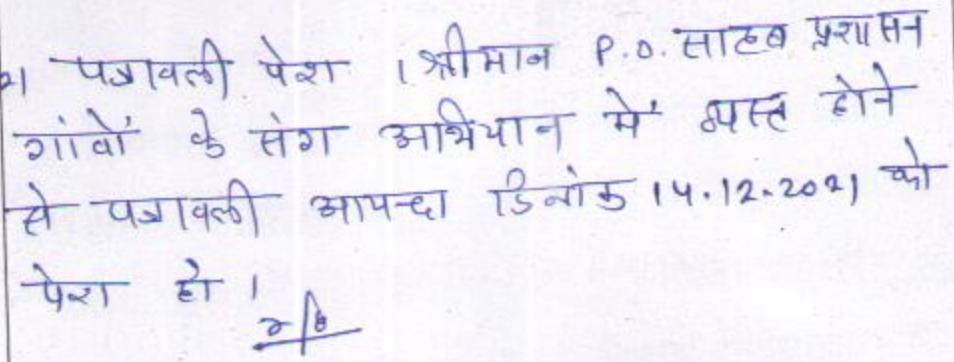 पत्रावली पेश । श्रीमान P.O. साहब प्रशासन
गांवों के संग अभियान में व्यस्त होने
से पत्रावली आयन्दा दिनांक 14.12.2021 को
पेश हो ।